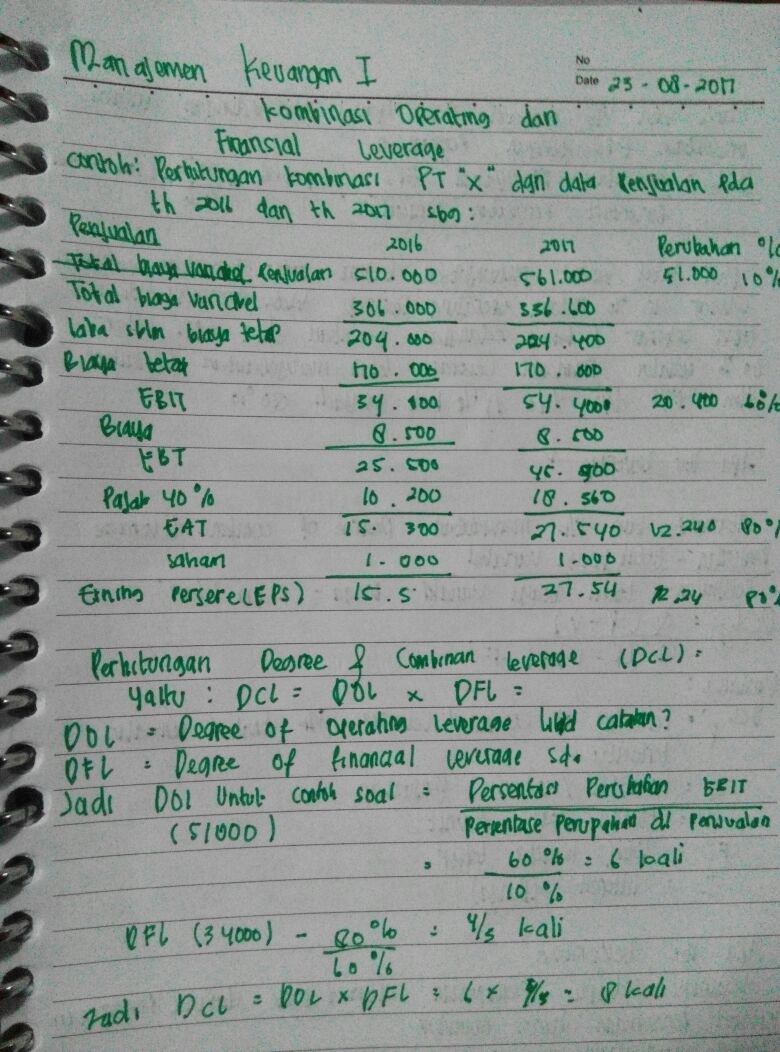 Manajemen Keuangan I
No
Date 23 - 08 - 2017
Kombinasi Operating dan
Finansial Leverage
Contoh: Perhitungan kombinasi PT "X" dgn data Penjualan pda
th 2016 dan th 2017 sbg:
Penjualan 2016 2017 Perubahan %
Total biaya variabel Penjualan 510.000 561.000 51.000 10%
Total biaya variabel 306.000 336.600
Laba sblm biaya tetap 204.000 224.400
Biaya tetap 170.000 170.000
EBIT 34.000 54.400 20.400 60%
Biaya 8.500 8.500
EBT 25.500 45.900
Pajak 40% 10.200 18.360
EAT 15.300 27.540 12.240 80%
Saham 1.000 1.000
Erning Persere (EPS) 15.5 27.54 12.24 80%
Perhitungan Degree of Combinan leverage (DCL) :
Yaitu : DCL = DOL x DFL =
DOL = Degree of Operating Leverage lihd catatan?
DFL = Degree of financial leverage sda
Jadi DOL untuk contoh soal = Persentasi Perubahan EBIT
(51000) Persentase Perupahan dl Penjualan
= 60% = 6 kali
10%
DFL (34000) - 80% = 4/3 kali
60%
Jadi DCL = DOL x DFL = 6 x 4/3 = 8 kali